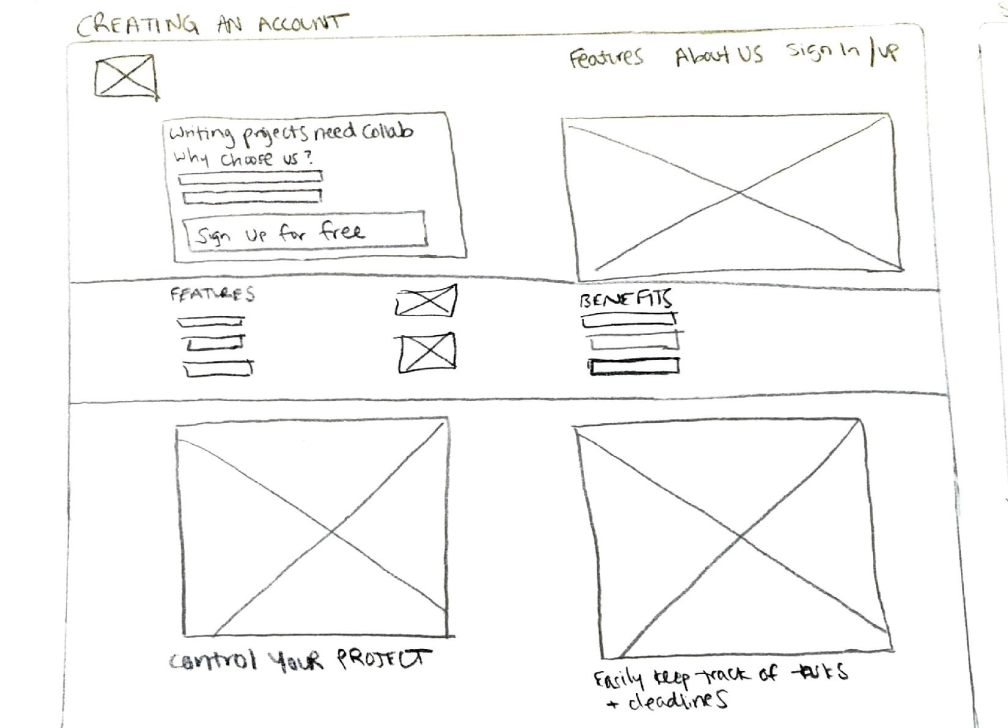 CREATING AN ACCOUNT
Features About US Sign In/up
Writing projects need collab
Why choose us?
Sign Up for free
FEATURES
BENEFITS
Control YOUR PROJECT
Easily keep track of tasks
+ deadlines